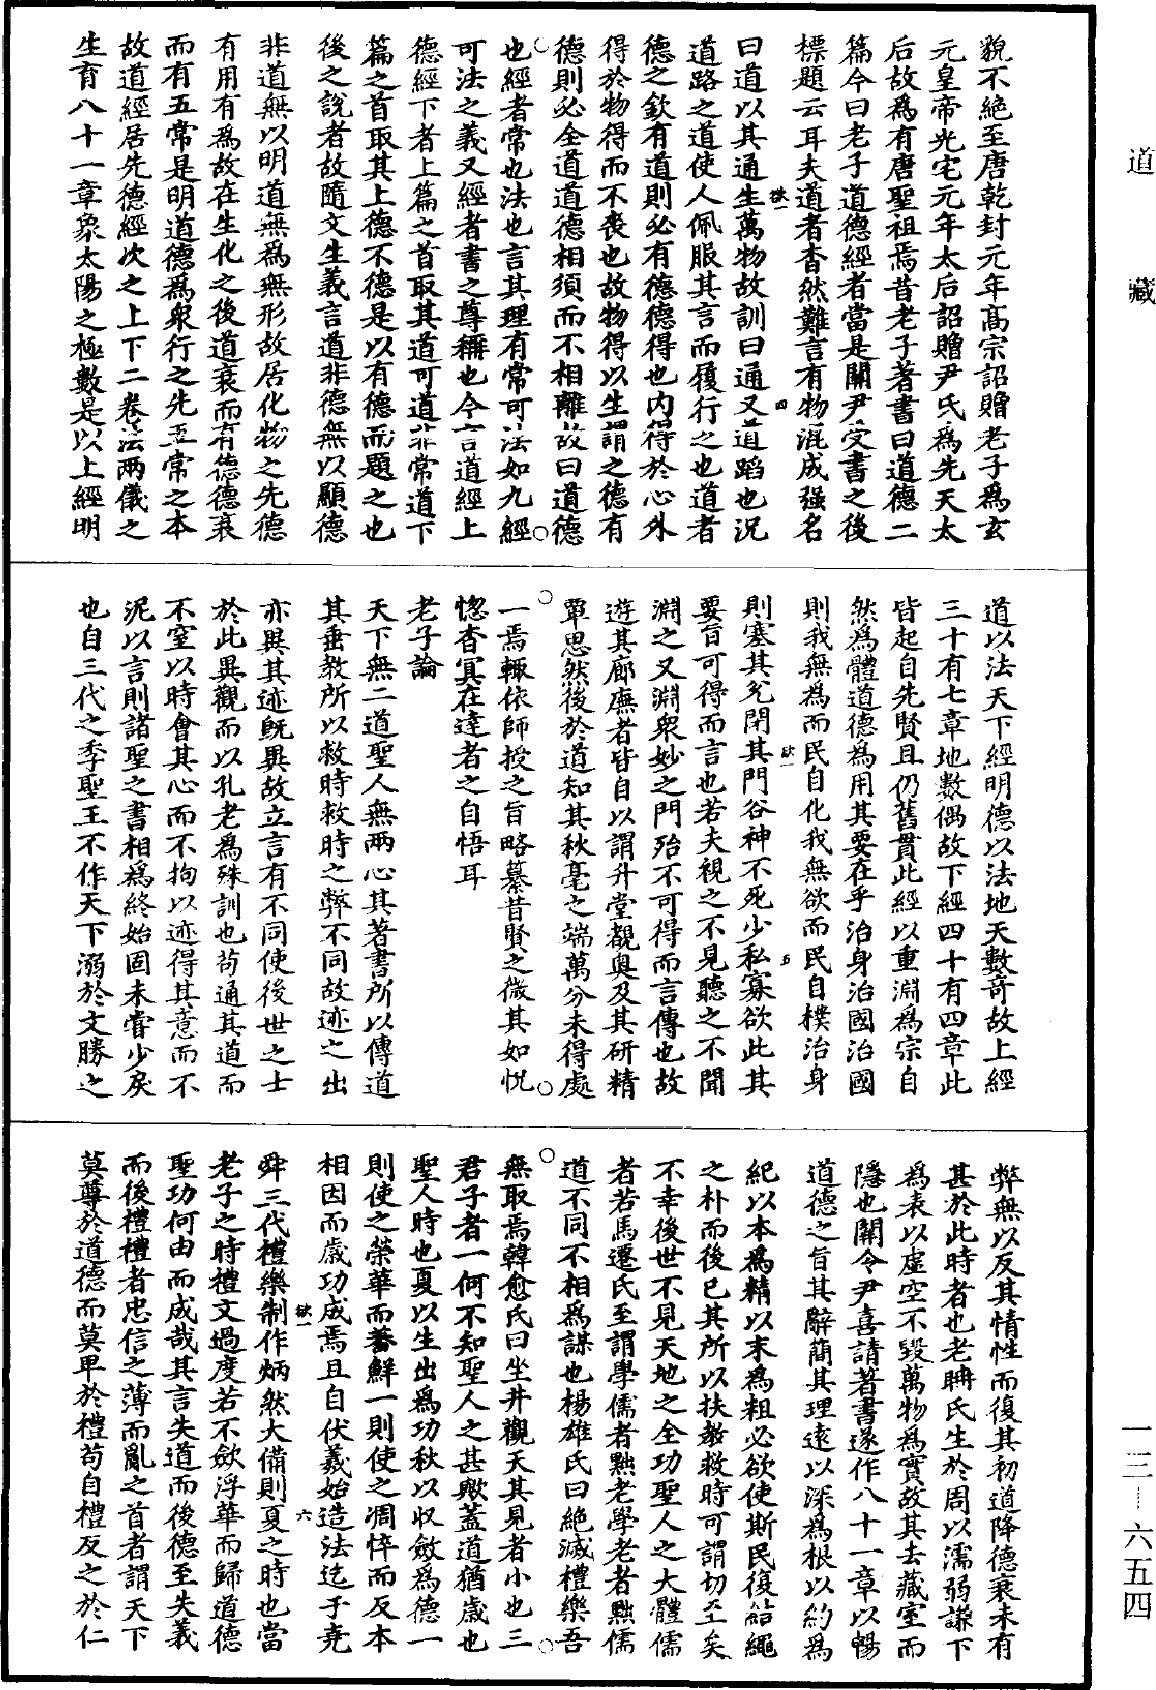 道藏
貌不絕至唐乾封元年髙宗詔贈老子爲玄
元皇帝光宅元年太后詔贈尹氏爲先天太
后故為有唐聖祖焉昔老子著書曰道德二
篇今曰老子道德經者當是關尹受書之後
標題云耳夫道者杳然難言有物混成强名
曰道以其通生萬物故訓曰通又道蹈也況
道路之道使人佩服其言而履行之也道者
德之欽有道則必有德德得也内得於心外
得於物得而不喪也故物得以生謂之德有
德則必全道道德相須而不相離故曰道德
也經者常也法也言其理有常可法如九經
可法之義又經者書之尊稱也今言道經上
德經下者上篇之首取其道可道非常道下
篇之首取其上德不德是以有德而題之也
後之說者故隨文生義言道非德無以顯德
非道無以明道無爲無形故居化物之先德
有用有爲故在生化之後道衰而有德德衰
而有五常是明道德爲衆行之先五常之本
故道經居先德經次之上下二卷法兩儀之
生育八十一章象太陽之極數是以上經明
道以法天下經明德以法地天數奇故上經
三十有七章地數偶故下經四十有四章此
皆起自先賢且仍舊貫此經以重淵爲宗自
然爲體道德爲用其要在乎治身治國治國
則我無為而民自化我無欲而民自樸治身
則塞其兌閉其門谷神不死少私寡欲此其
要旨可得而言也若夫視之不見聽之不聞
淵之又淵衆妙之門殆不可得而言傳也故
遊其廊廡者皆自以謂升堂覩奥及其研精
覃思然後於道知其秋毫之端萬分未得處
一焉輒依師授之旨略纂昔賢之微其如恍
惚杳冥在達者之自悟耳
老子論
天下無二道聖人無兩心其著書所以傳道
其垂教所以救時救時之弊不同故迹之出
亦與其迹既異故立言有不同使後世之士
於此異觀而以孔老爲殊訓也苟通其道而
不窒以時會其心而不拘以迹得其意而不
泥以言則諸聖之書相爲終始固未甞少戾
也自三代之季聖王不作天下溺於文勝之
弊無以反其情性而復其初道降德衰未有
甚於此時者也老聃氏生於周以濡弱謙下
爲表以虚空不毀萬物爲實故其去藏室而
隱也關令尹喜請著書遂作八十一章以暢
道德之旨其辭蕳其理遠以深爲根以約爲
紀以本爲精以末爲粗必欲使斯民復結繩
之朴而後已其所以扶教救時可謂切至矣
不幸後世不見天地之全功聖人之大體儒
者若馬遷氏至謂學儒者黜老學老者黜儒
道不同不相爲謀也楊雄氏曰絶滅禮樂吾
無取焉韓愈氏曰坐井觀天其見者小也三
君子者一何不知聖人之甚歟蓋道猶歲也
聖人時也夏以生出爲功秋以収斂為德一
則使之榮華而蕃鮮一則使之凋悴而反本
相因而歲功成焉且自伏羲始造法迄于尭
舜三代禮樂制作炳然大備則夏之時也當
老子之時禮文過度若不歛浮華而歸道德
聖功何由而成哉其言失道而後德至失義
而後禮禮者忠信之薄而亂之首者謂天下
莫尊於道德而莫卑於禮苟自禮反之於仁
一三—六五四